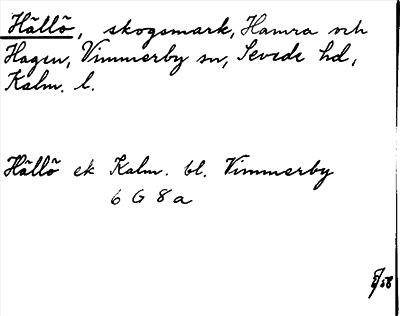 Hällö, skogsmark, Hamra och
Hagen, Vimmerby sn, Sevede hd,
Kalm. l.
Hällö ek Kalm. bl. Vimmerby
6 G 8 a